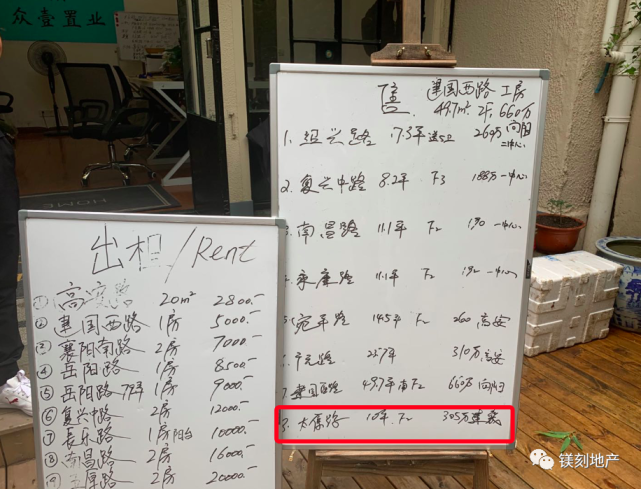 众壹置业
售 建国西路 工房
49.7m² 2F. 660万
1. 绍兴路 17.3平 260万 向阳
二中心
2. 复兴中路 8.2平 F3 188万 一中心
南昌路 11.1平 F2 190 一中心
永康路 11.1平 F2 192 一中心
宛平路 14.5平 F2 260 高安
平 310万 高安
7. 建国西路 49.7平 F2 660万 向阳
8. 太原路 10平 F2 305万
出租/Rent
① 高安路 20m² 2800.-
② 建国西路 1房 5000.-
③ 襄阳南路 2房 7000.-
④ 岳阳路 1房 8500.-
⑤ 岳阳路 79弄 1房 9000.-
⑥ 复兴中路 2房 12000.-
⑦ 长乐路 1房 阳台 10000.-
⑧ 南昌路 2房 16000.-
原路 2房 20000.-
HOME
镁刻地产